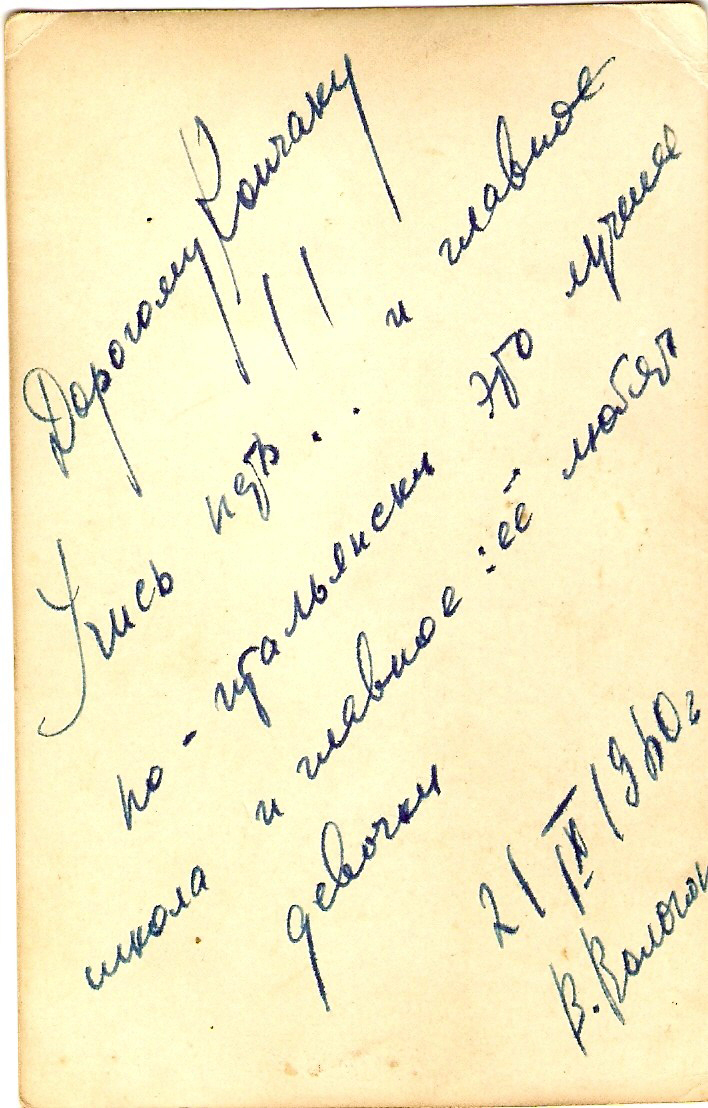 Дорогому Кончаку!!
Учись петь.. и главное
по-итальянски это лучшая
школа и главное: её любят
девочки
21/IX/1960г
В.